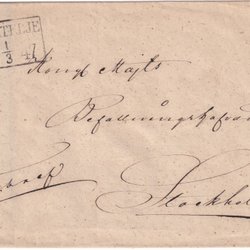 TELJE
1/3 47
Kongl Majts
Befallningshafvan
Stockhol